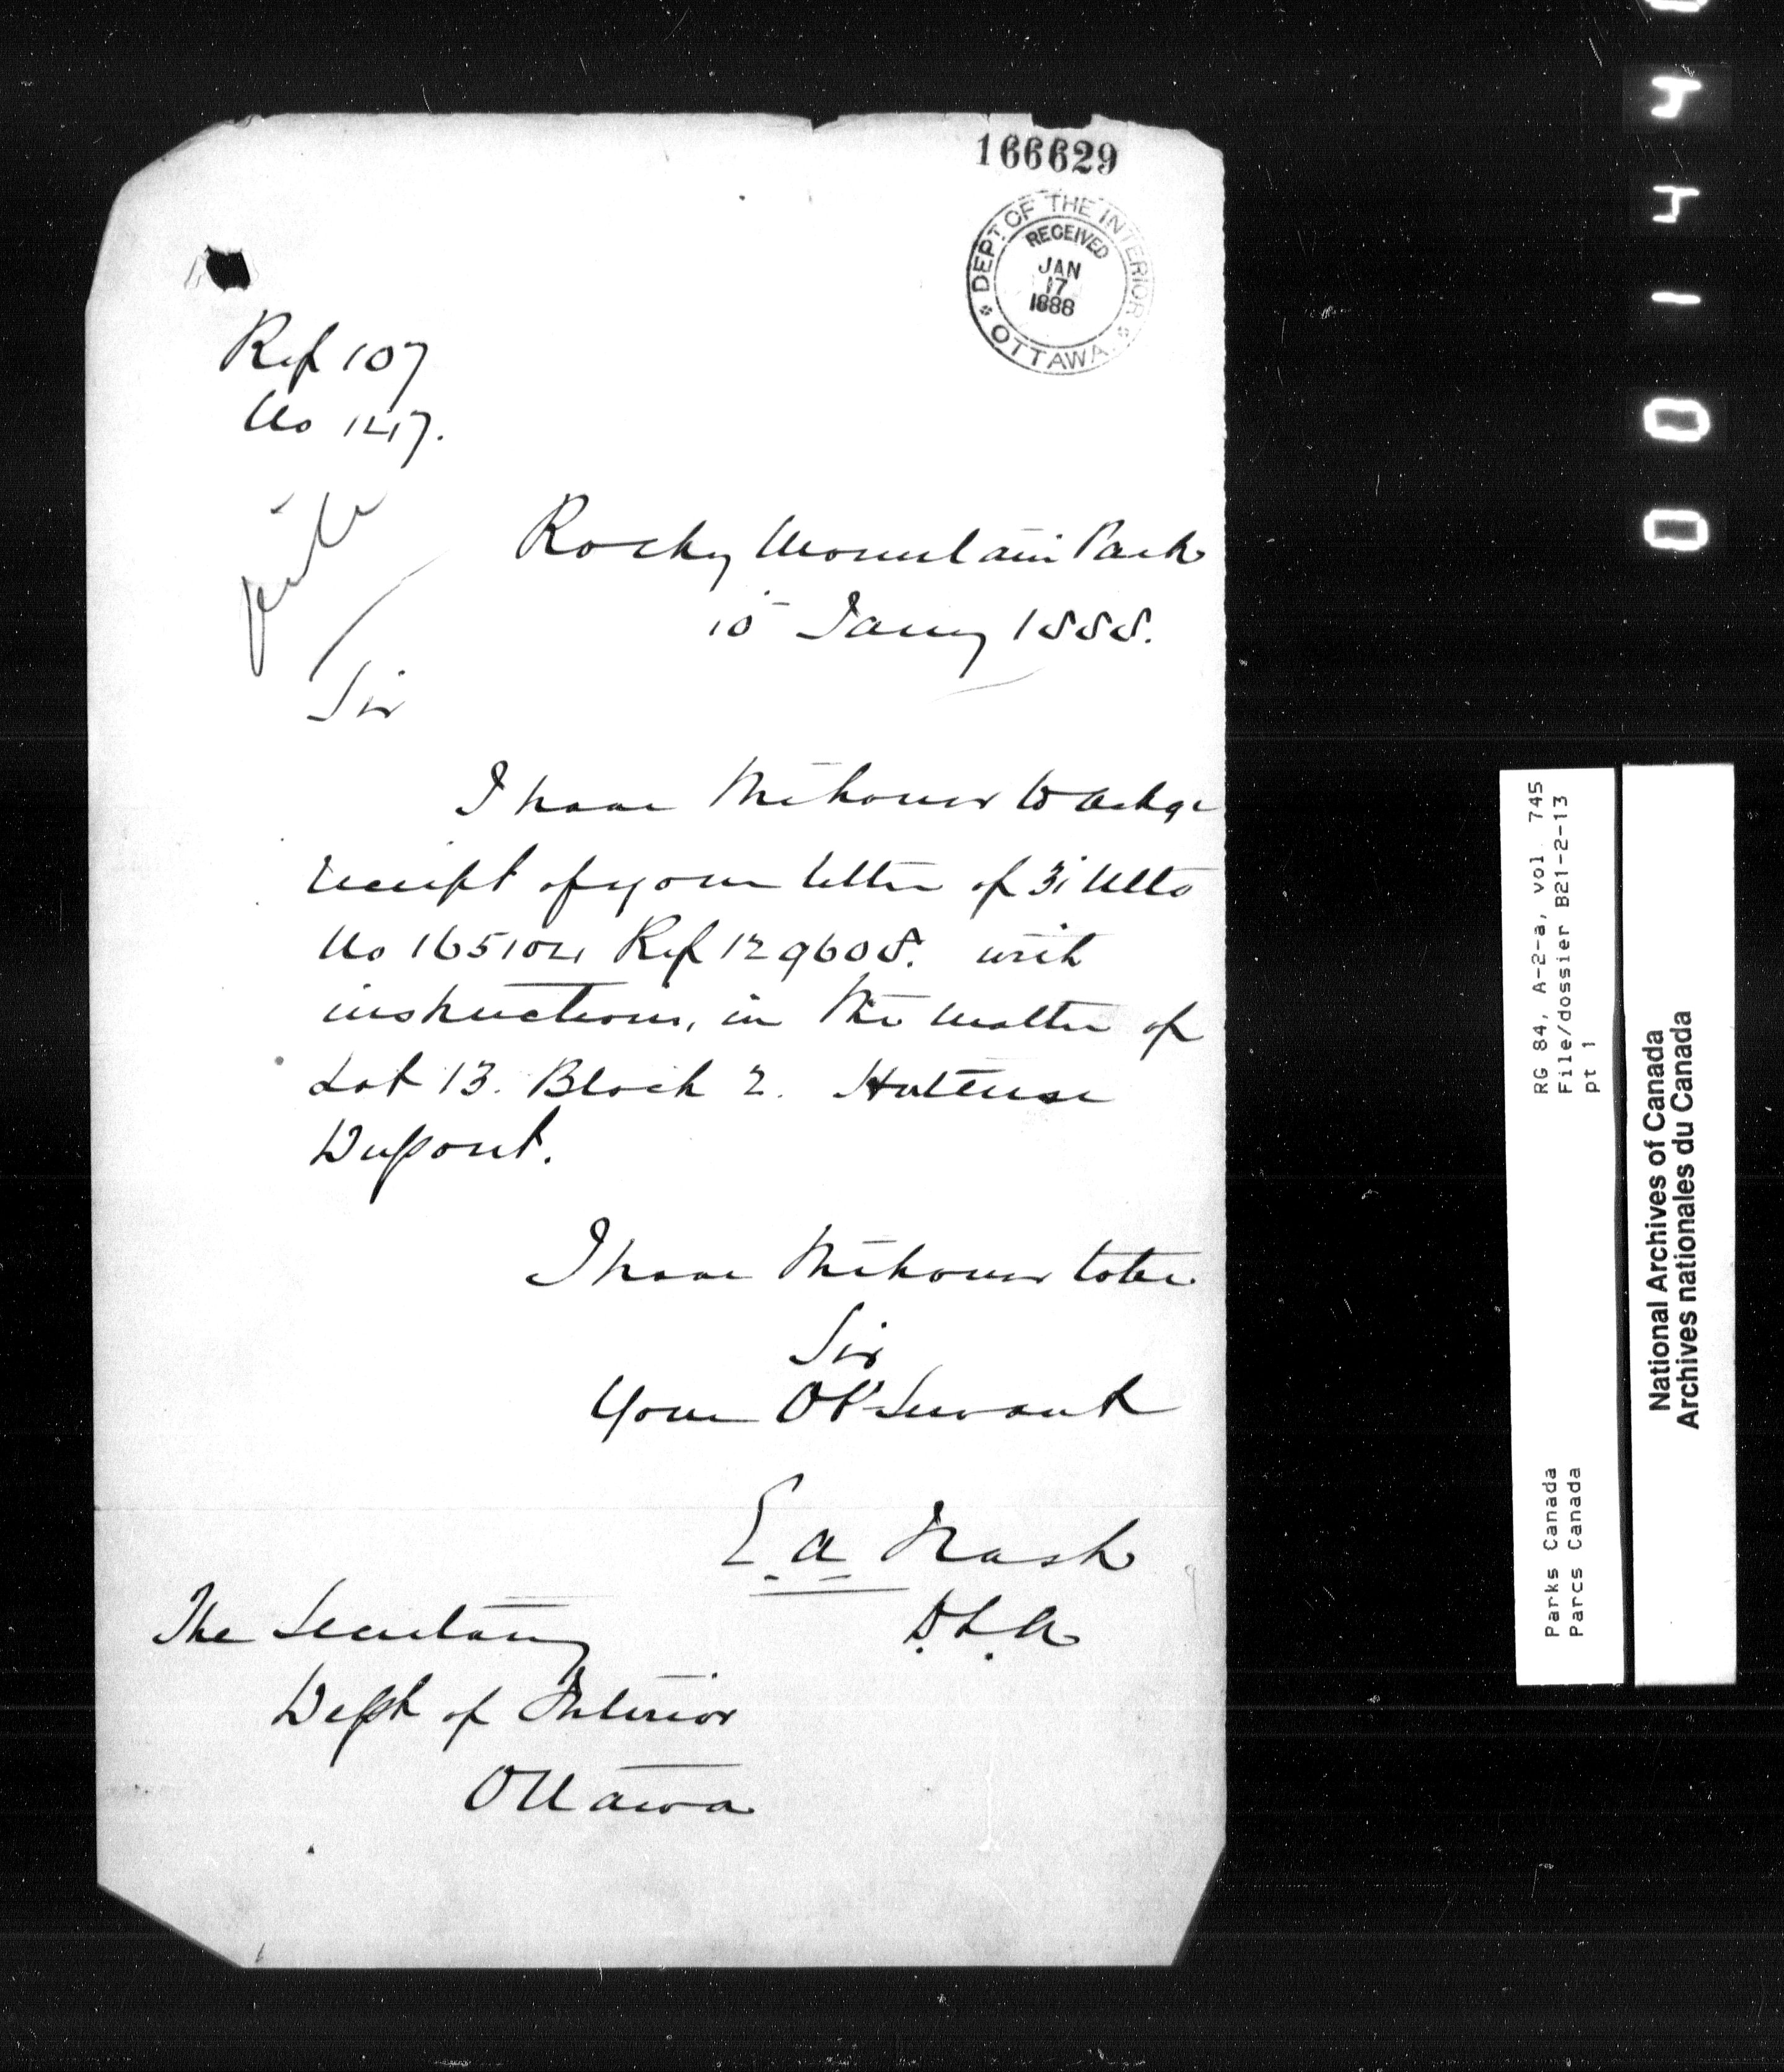 166629
DEPT. OF THE INTERIOR
RECEIVED
JAN
17
1888
OTTAWA.
Ref 107
No 147.
Rocky Mountain Park
10 Jany 1888.
Sir
I have the honor to ackge
receipt of your letter of 31 Ulto
No 165104 Ref 129608. with
instructions, in the matter of
Lot 13. Block 2. Hortense
Dupont.
I have the honor to be
Sir
Your Ob' Servant
E A Nash
D.L.A
The Secretary
Dept of Interior
Ottawa
RG 84, A-2-a, vol. 745
File/dossier B21-2-13
pt 1
Parks Canada
Parcs Canada
National Archives of Canada
Archives nationales du Canada